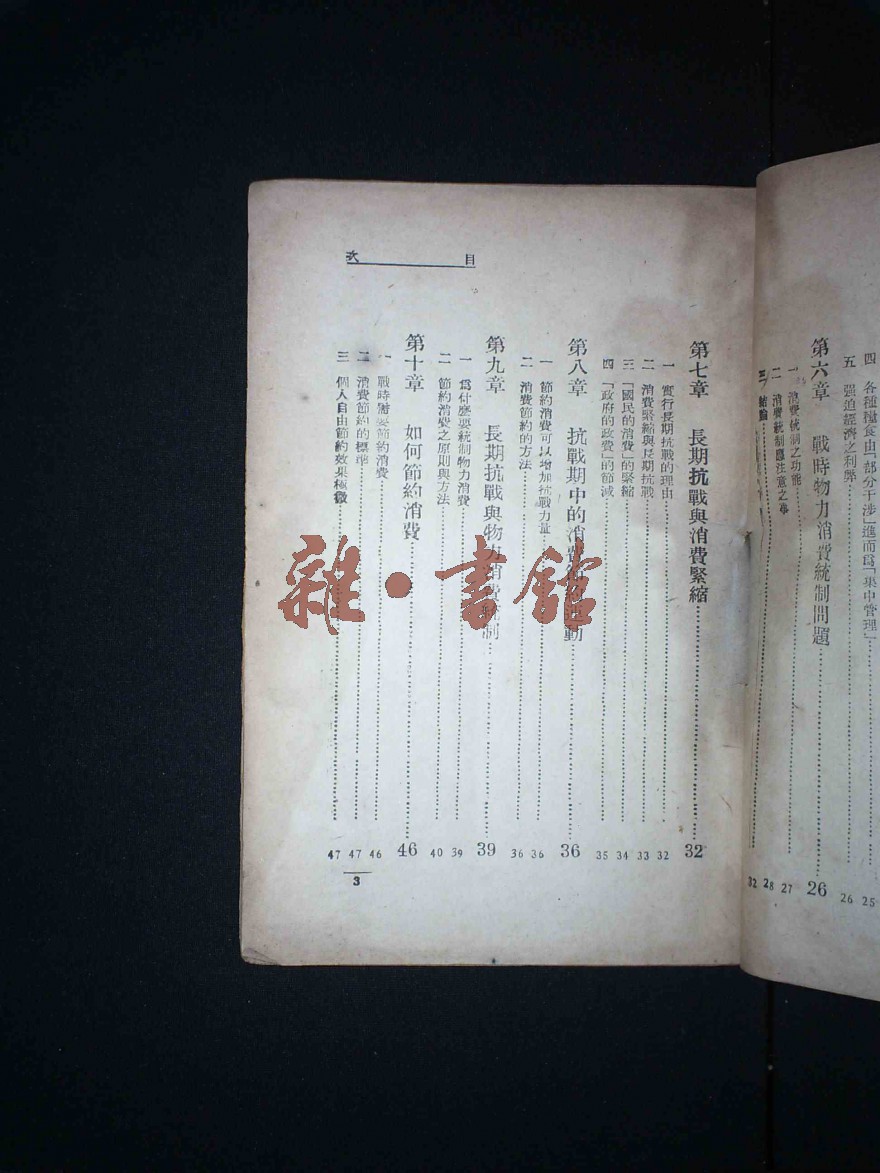 四 各種糧食由「部分干涉」進而爲「集中管理」 25
五 强迫經濟之利弊 26
第六章 戰時物力消費統制問題 26
一 消費統制之功能 27
二 消費統制應注意之事 28
三 結論 32
目次
第七章 長期抗戰與消費緊縮 32
一 實行長期抗戰的理由 32
二 消費緊縮與長期抗戰 33
三 「國民的消費」的緊縮 34
四 「政府的政費」的節減 35
第八章 抗戰期中的消費節約運動 36
一 節約消費可以增加抗戰力量 36
二 消費節約的方法 36
第九章 長期抗戰與物力消費統制 39
一 爲什麼要統制物力消費 39
二 節約消費之原則與方法 40
第十章 如何節約消費 46
一 戰時需要節約消費 46
二 消費節約的標準 47
三 個人自由節約效果極微 47
3
雜·書館